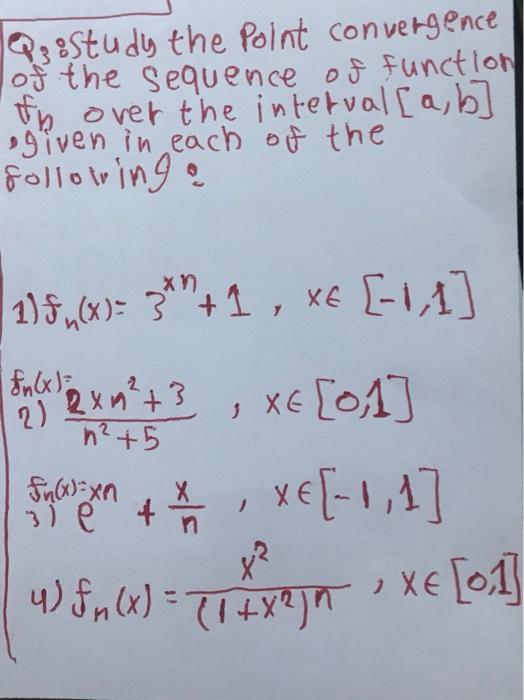 Q3: Study the Point convergence
of the sequence of function
fn over the interval [a,b]
, given in each of the
following:
1) fₙ(x) = 3^{xn} + 1 , x∈ [-1,1]
2) fₙ(x) = \frac{2xn² + 3}{n² + 5} , x∈ [0,1]
3) fₙ(x) = e^{xn} + \frac{x}{n} , x∈ [-1,1]
4) fₙ(x) = \frac{x²}{(1+x²)^n} , x∈ [0,1]